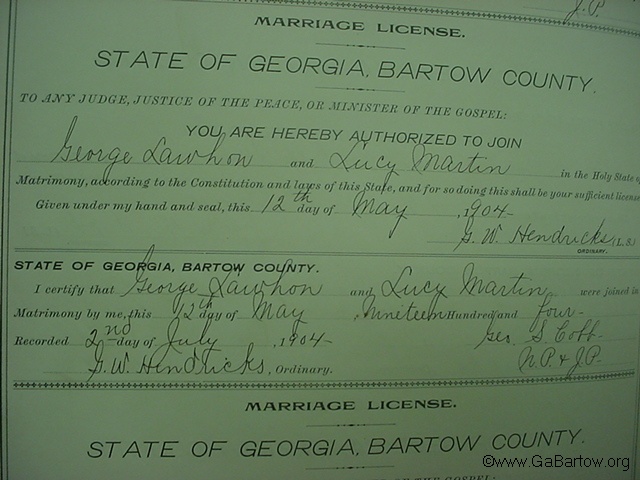 J.P.
MARRIAGE LICENSE.
STATE OF GEORGIA, BARTOW COUNTY.
TO ANY JUDGE, JUSTICE OF THE PEACE, OR MINISTER OF THE GOSPEL:
YOU ARE HEREBY AUTHORIZED TO JOIN
George Lawhon and Lucy Martin in the Holy State o
Matrimony, according to the Constitution and laws of this State, and for so doing this shall be your sufficient license
Given under my hand and seal, this 12th day of May , 1904-
G. W. Hendricks (L.S.)
ORDINARY.
STATE OF GEORGIA, BARTOW COUNTY.
I certify that George Lawhon and Lucy Martin were joined in
Matrimony by me, this 12th day of May , Nineteen Hundred and four-
Recorded 2nd day of July , 1904- Geo. S. Cobb-
G. W. Hendricks, Ordinary. N.P. & J.P.
MARRIAGE LICENSE.
STATE OF GEORGIA, BARTOW COUNTY.
OF THE GOSPEL:
©www.GaBartow.org